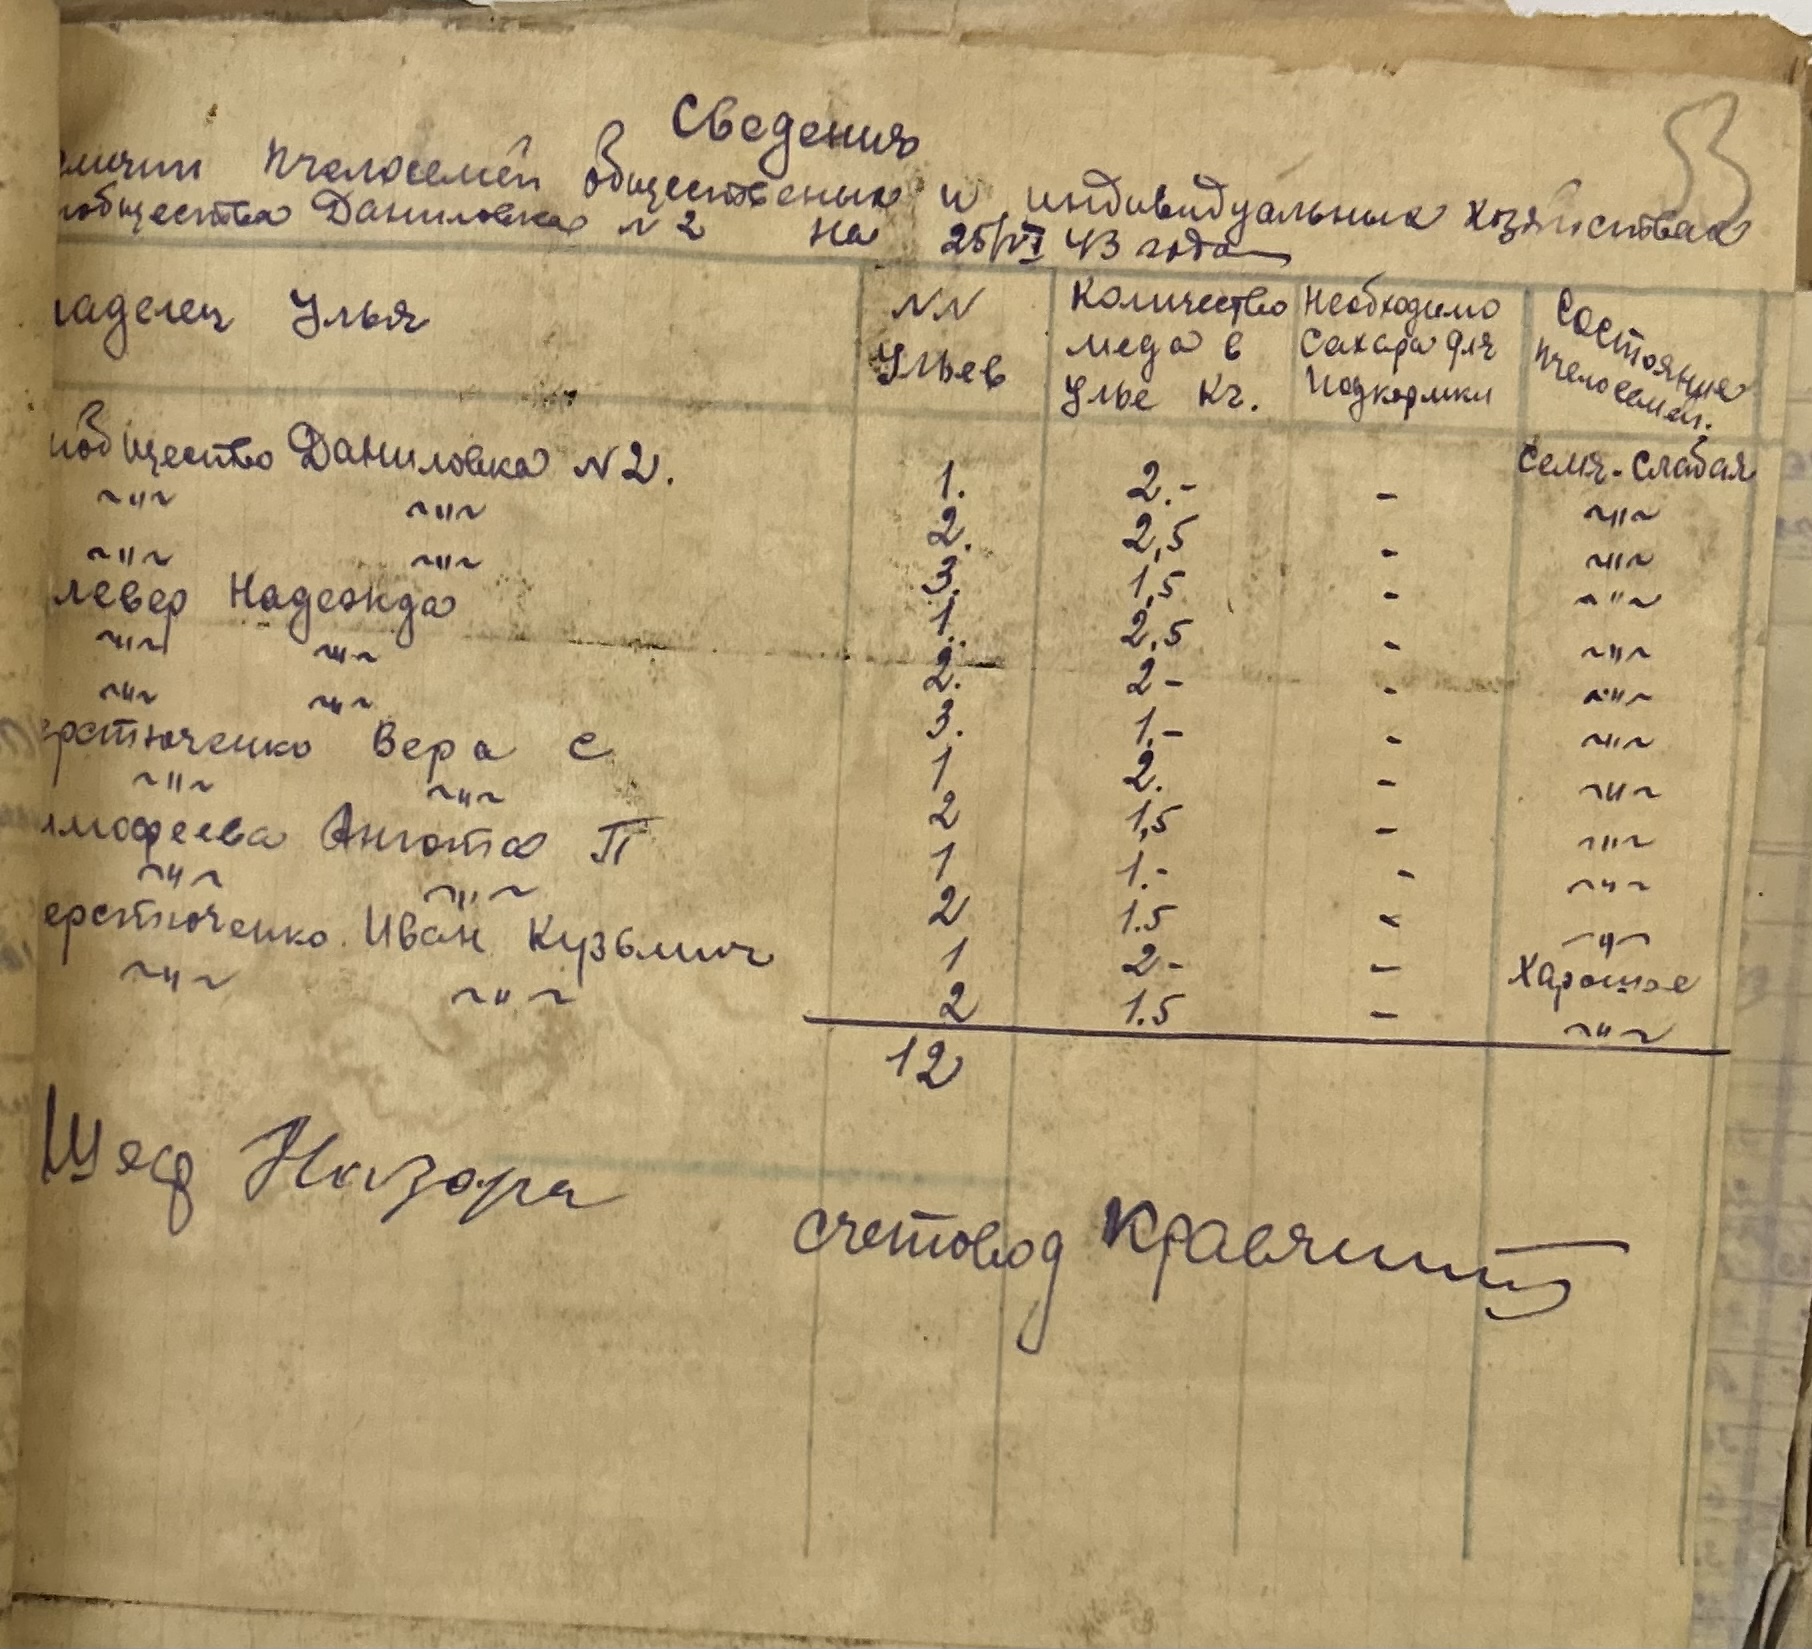 53
Сведения
еличии пчелосемей общественых и индивидуальных хозяйствах
нобщества Даниловка N2 на 25/VI 43 года
ладелец Улья NN Ульев Количество меда в Улье Кг. Необходимо Сахара для Подкормки Состояние пчелосемей.
нобщество Даниловка N2. 1. 2.- - Семя-слабая
~"~ ~"~ 2. 2,5 - ~"~
~"~ ~"~ 3. 1,5 - ~"~
левер Надежда 1. 2,5 - ~"~
~"~ ~"~ 2. 2- - ~"~
~"~ ~"~ 3. 1.- - ~"~
ерстюченко Вера С 1 2. - ~"~
~"~ ~"~ 2 1,5 - ~"~
имофеева П 1 1.- - ~"~
~"~ ~"~ 2 1.5 - ~"~
ерстюченко Иван Кузьмич 1 2- - Харошое
~"~ ~"~ 2 1.5 - ~"~
12
Шеф
счетовод